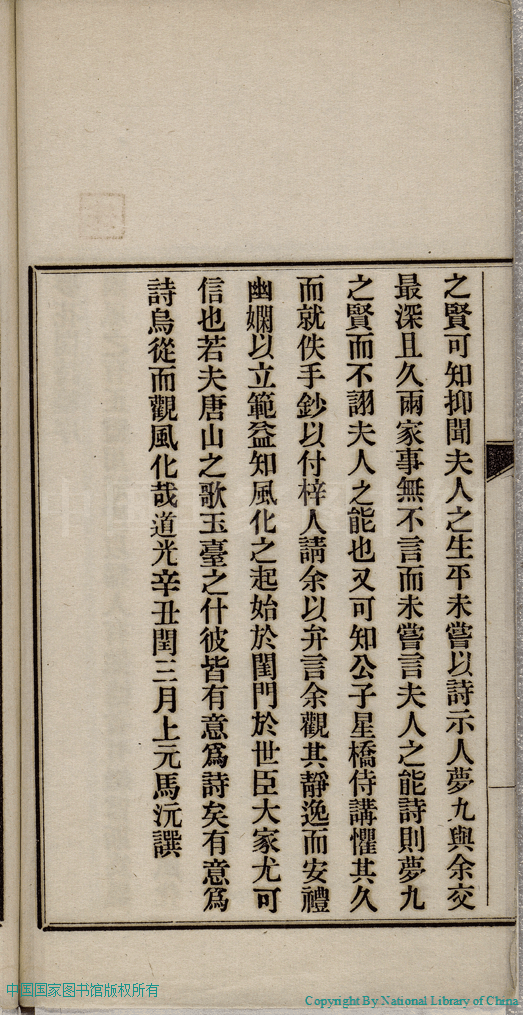 之賢可知抑聞夫人之生平未嘗以詩示人夢九與余交
最深且久兩家事無不言而未嘗言夫人之能詩則夢九
之賢而不詡夫人之能也又可知公子星橋侍講懼其久
而就佚手鈔以付梓人請余以弁言余觀其靜逸而安禮
幽嫻以立範益知風化之起始於閨門於世臣大家尤可
信也若夫唐山之歌玉臺之什彼皆有意爲詩矣有意爲
詩烏從而觀風化哉道光辛丑閏三月上元馬沅譔
中国国家图书馆版权所有
Copyright By National Library of China